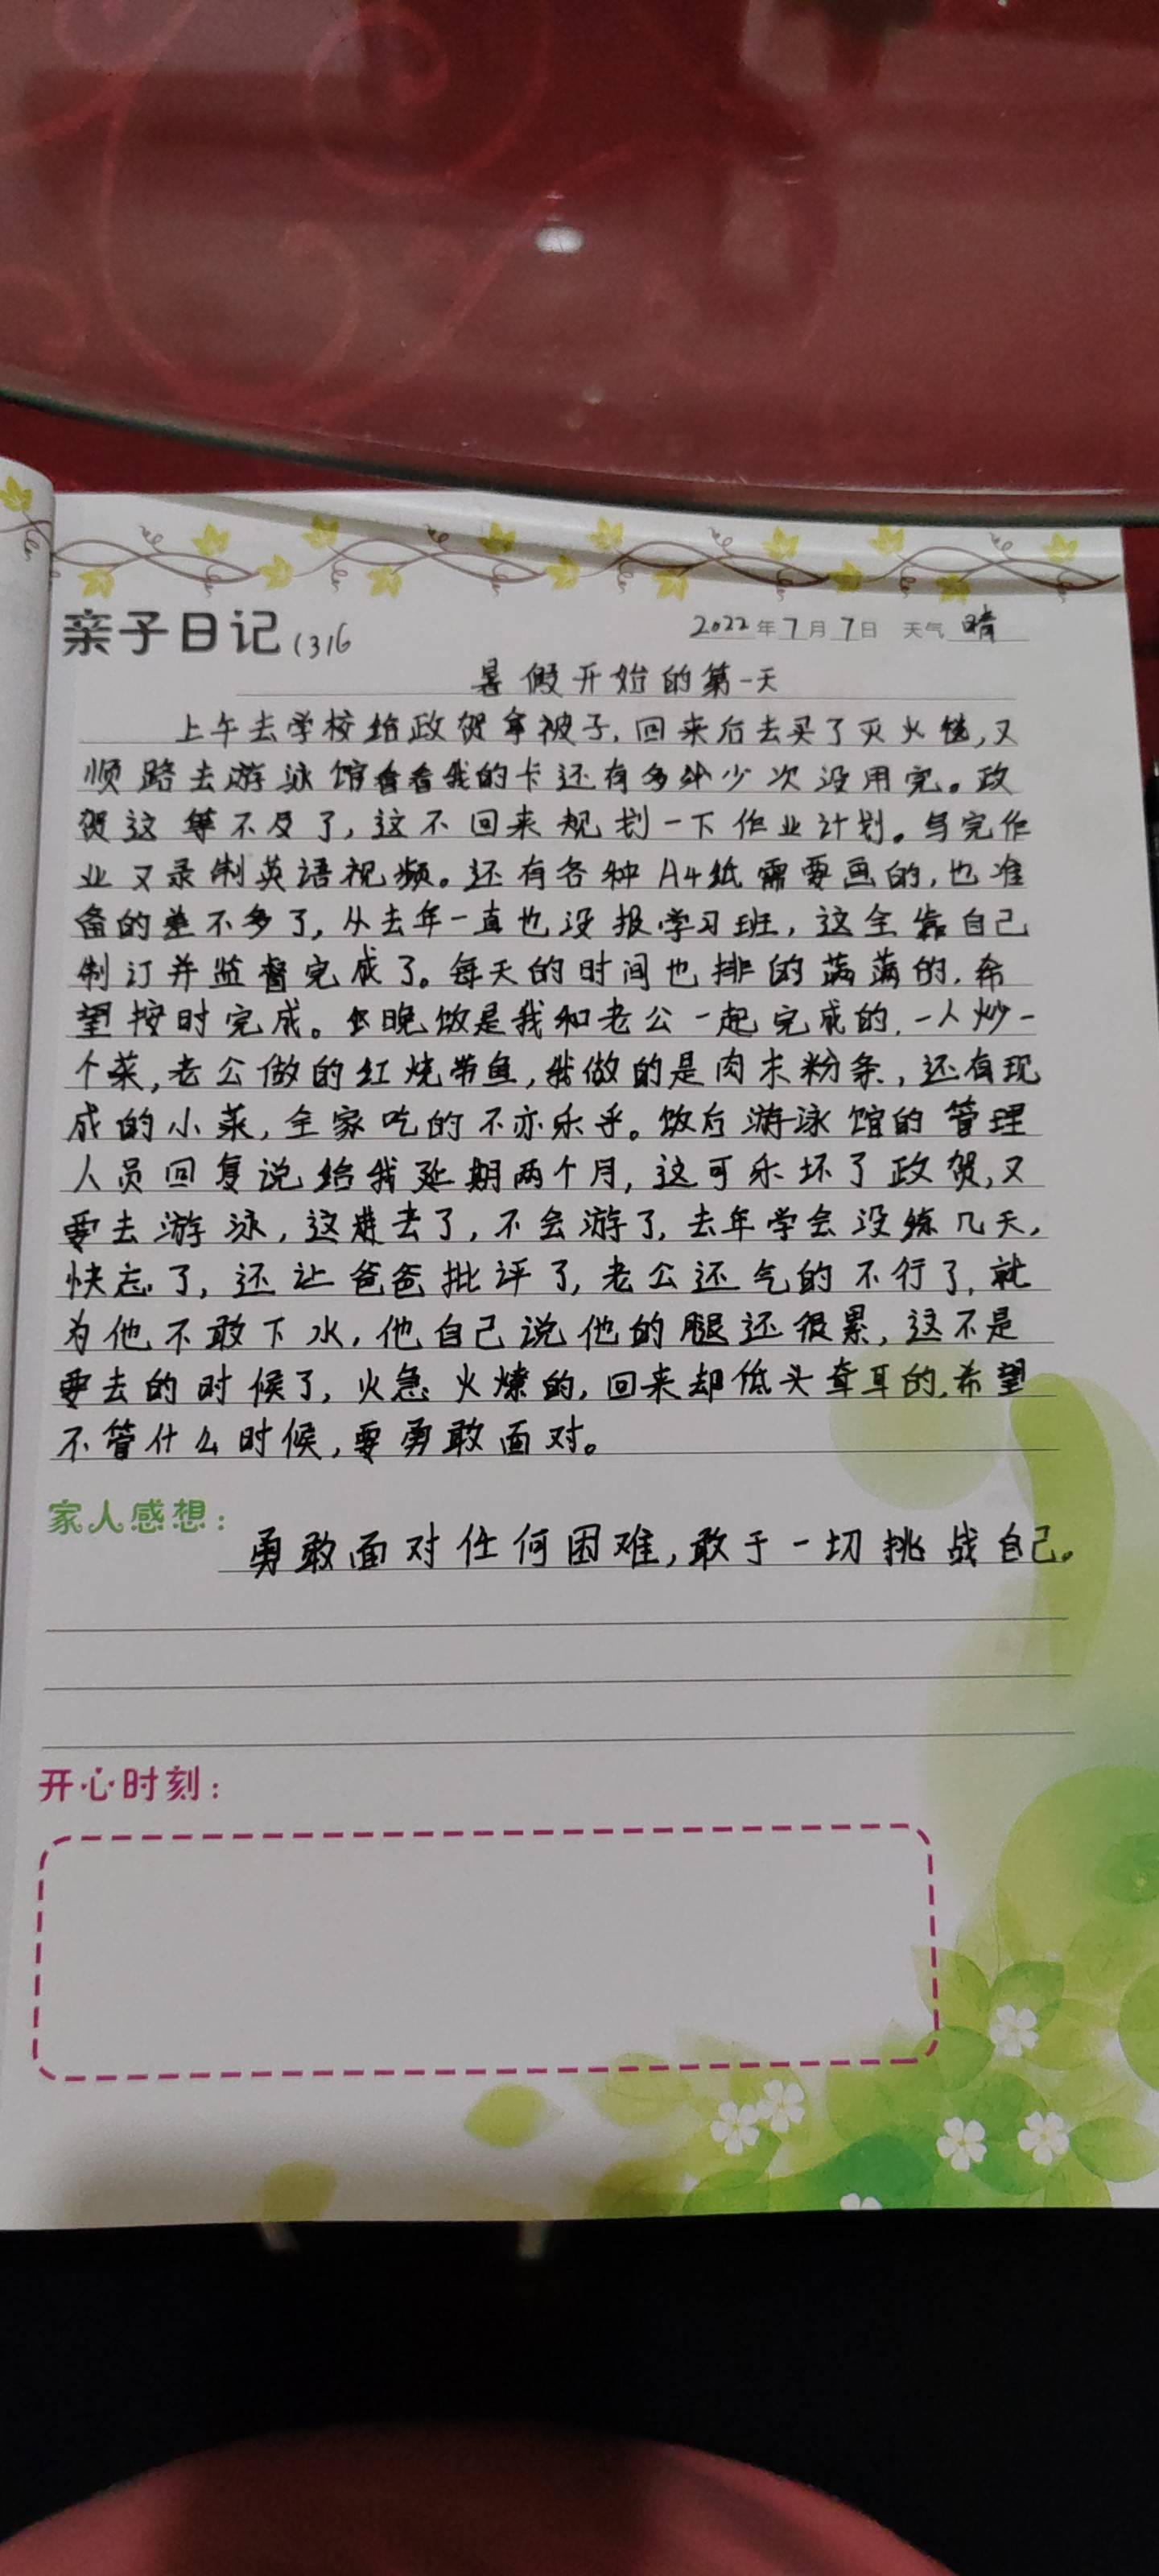 亲子日记 1316
2022年7月7日 天气 晴
暑假开始的第一天
上午去学校给政贺拿被子,回来后去买了灭火毯,又
顺路去游泳馆看看我的卡还有多少次没用完。政
贺这等不及了,这不回来规划一下作业计划。写完作
业又录制英语视频。还有各种A4纸需要画的,也准
备的差不多了,从去年一直也没报学习班,这全靠自己
制订并监督完成了。每天的时间也排的满满的,希
望按时完成。晚饭是我和老公一起完成的,一人炒一
个菜,老公做的红烧带鱼,我做的是肉末粉条,还有现
成的小菜,全家吃的不亦乐乎。饭后游泳馆的管理
人员回复说给我延期两个月,这可乐坏了政贺,又
要去游泳,这进去了,不会游了,去年学会没练几天,
快忘了,还让爸爸批评了,老公还气的不行了,就
为他不敢下水,他自己说他的腿还很累,这不是
要去的时候了,火急火燎的,回来却低头耷耳的,希望
不管什么时候,要勇敢面对。
家人感想:
勇敢面对任何困难,敢于一切挑战自己。
开心时刻: